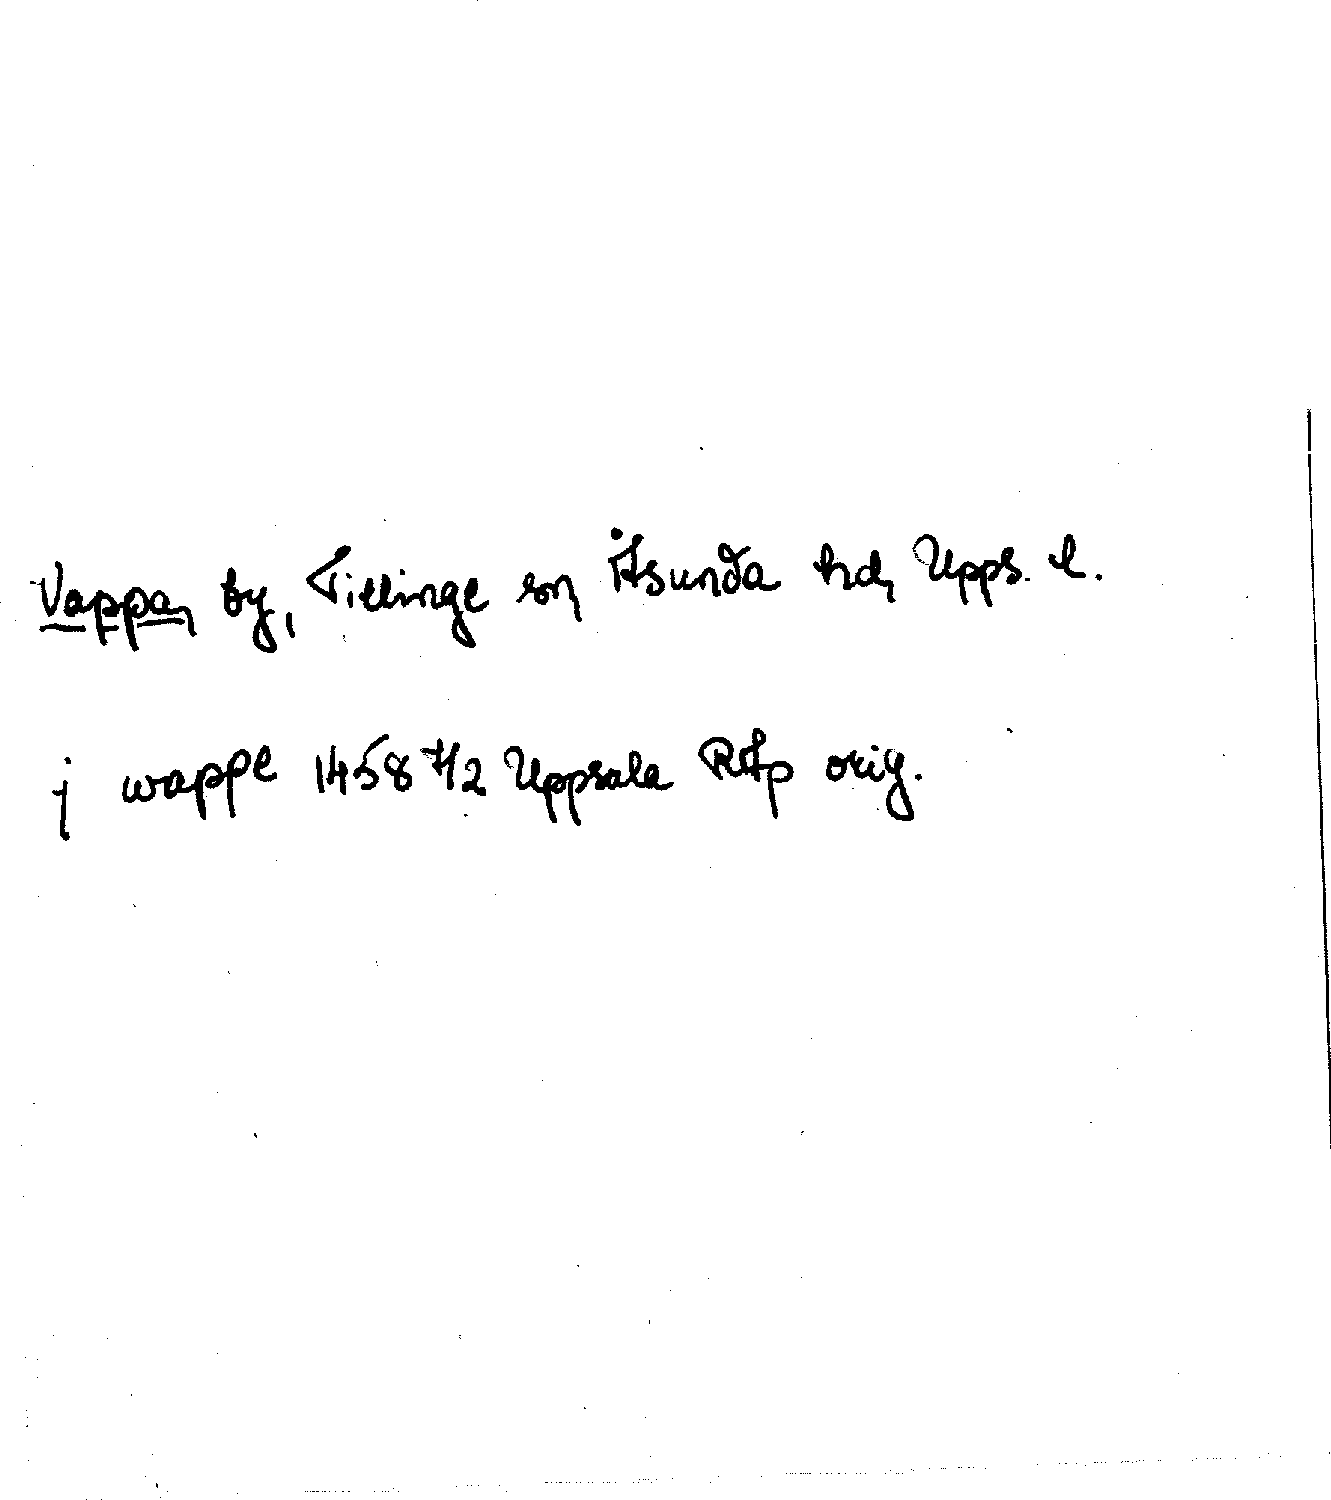 Vappa, by, Tillinge sn Åsunda hd, Upps. l.
j wappe 1458 4/2 Uppsala RAp orig.